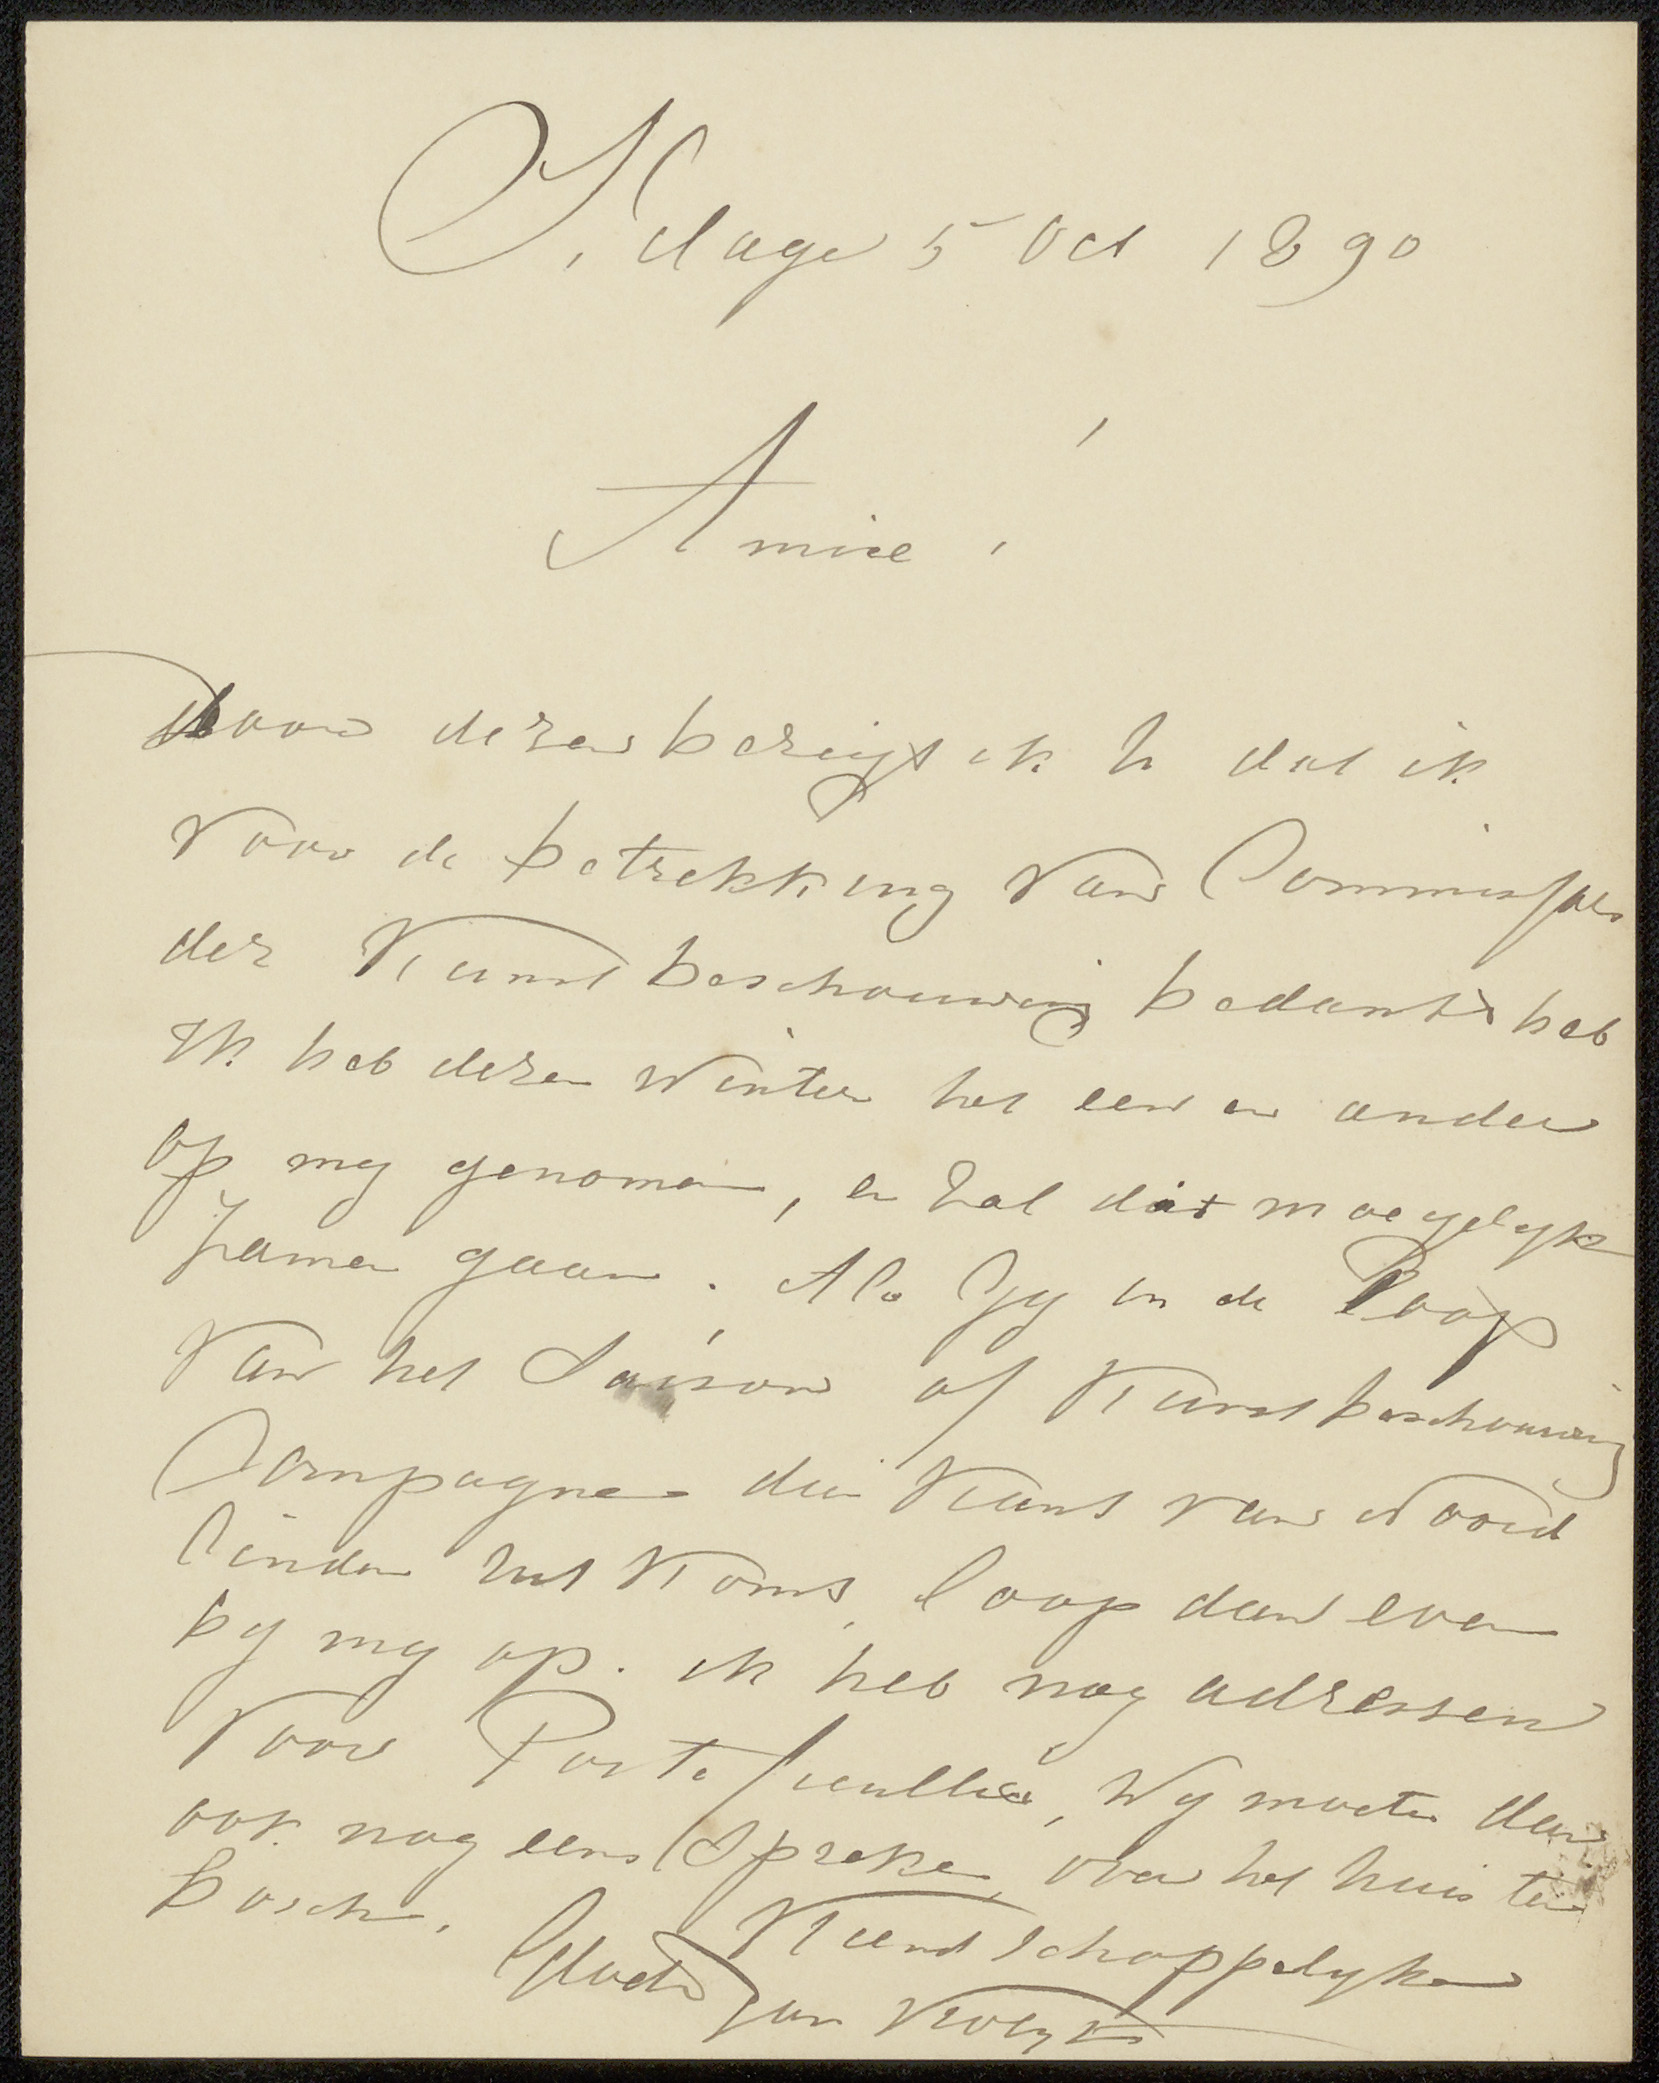 S, Hage 5 Oct 1890
Amice !
Door dezen berigt ik U dat ik
voor de betrekking van Commissaris
der Kunstbeschouwing bedankt heb
Ik heb dezen winter het een en ander
op my genomen, en zal dat moeyelyk
zamen gaan. Als Gy in de loop
van het Saison of Kunstbeschouwing
Campagne die Kant van Noord
Einde uit komt, loop dan even
by my op. ik heb nog adressen
voor Portefeuilles, Wy moeten dan
ook nog eens spreken, over het huis ten
Bosch.
Vriendschappelyke
Groete Jan Vrolyk